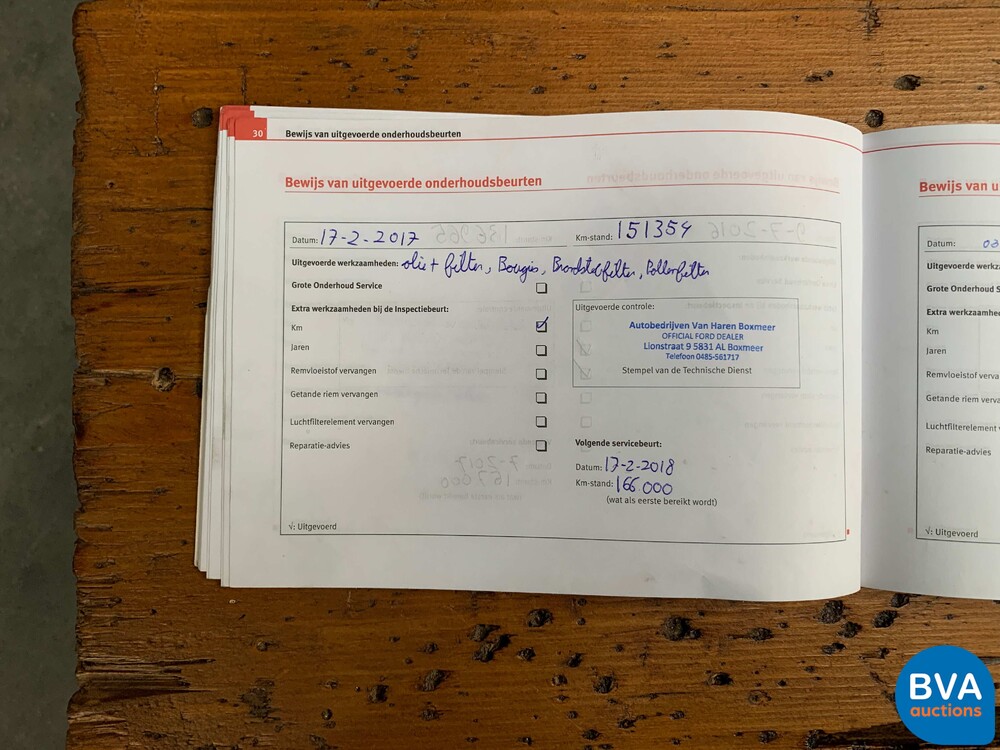 30 Bewijs van uitgevoerde onderhoudsbeurten
Bewijs van uitgevoerde onderhoudsbeurten
Datum: 17-2-2017
Km-stand: 151354
Uitgevoerde werkzaamheden: olie + filter, Bougies, Brandstoffilter, Pollenfilter
Grote Onderhoud Service
Extra werkzaamheden bij de Inspectiebeurt:
Km
Jaren
Remvloeistof vervangen
Getande riem vervangen
Luchtfilterelement vervangen
Reparatie-advies
√: Uitgevoerd
Uitgevoerde controle:
Autobedrijven Van Haren Boxmeer
OFFICIAL FORD DEALER
Lionstraat 9 5831 AL Boxmeer
Telefoon 0485-561717
Stempel van de Technische Dienst
Volgende servicebeurt:
Datum: 17-2-2018
Km-stand: 166.000
(wat als eerste bereikt wordt)
Bewijs van u
Datum: 03
Uitgevoerde werkz
Grote Onderhoud S
Extra werkzaamhe
Km
Jaren
Remvloeistof verva
Getande riem verva
Luchtfilterelement v
Reparatie-advies
√: Uitgevoerd
BVA
auctions